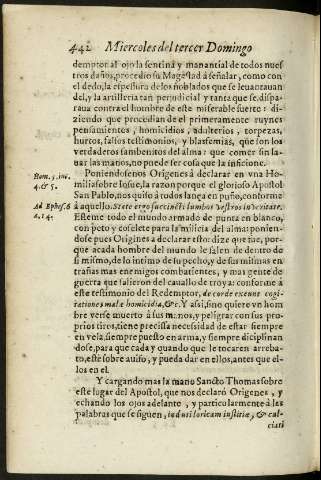 442 Miercoles del tercer Domingo
demptor al ojo la sentina y manantial de todos nues
tros daños, procedio su Magestad à señalar, como con
el dedo, la espessura de los ñoblados que se leuantauan
del, y la artilleria tan perjudicial y tanta que se dispa-
raua contra el hombre de este miserable fuerte: di-
ziendo que procedian de el primeramente ruynes
pensamientos, homicidios, adulterios, torpezas,
hurtos, falsos testimonios, y blasfemias, que son los
verdaderos sambenitos del alma: que comer sin la-
uar las manos, no puede ser cosa que la inficione.
Poniendosenos Origenes à declarar en vna Ho-
Hom. 5. in c.
milia sobre Iosue, la razon porque el glorioso Apostol
4. & 5.
San Pablo, nos quiso à todos lança en puño, conforme
Ad Ephes. 6
à aquello. State ergo succincti lumbos vestros in veritate.
n. 14.
Esteme todo el mundo armado de punta en blanco,
con peto y coselete para la milicia del alma: ponien-
dose pues Origines à declarar esto dize que fue, por-
que acada hombre del mundo le salen de dentro de
si mismo, de lo intimo de su pecho, y de sus mismas en
trañas mas enemigos combatientes, y mas gente de
guerra que salieron del cauallo de troya: conforme à
este testimonio del Redemptor, de corde exeunt cogi-
tationes malæ homicidia, &c. Y assi, sino quiere vn hom
bre verse muerto à sus manos, y peligrar con sus pro-
prios tiros, tiene precissa necesidad de estar siempre
en vela, siempre puesto en arma, y siempre diciplinan
dose, para que cada y quando que le tocaren arreba-
to, este sobre auiso, y pueda dar en ellos, antes que el-
los en el.
Y cargando mas la mano Sancto Thomas sobre
este lugar del Apostol, que nos declarò Origenes, y
echando los ojos adelante, y particularmente à les
palabras que se siguen, induti loricam iustitiæ, & cal-
ciati